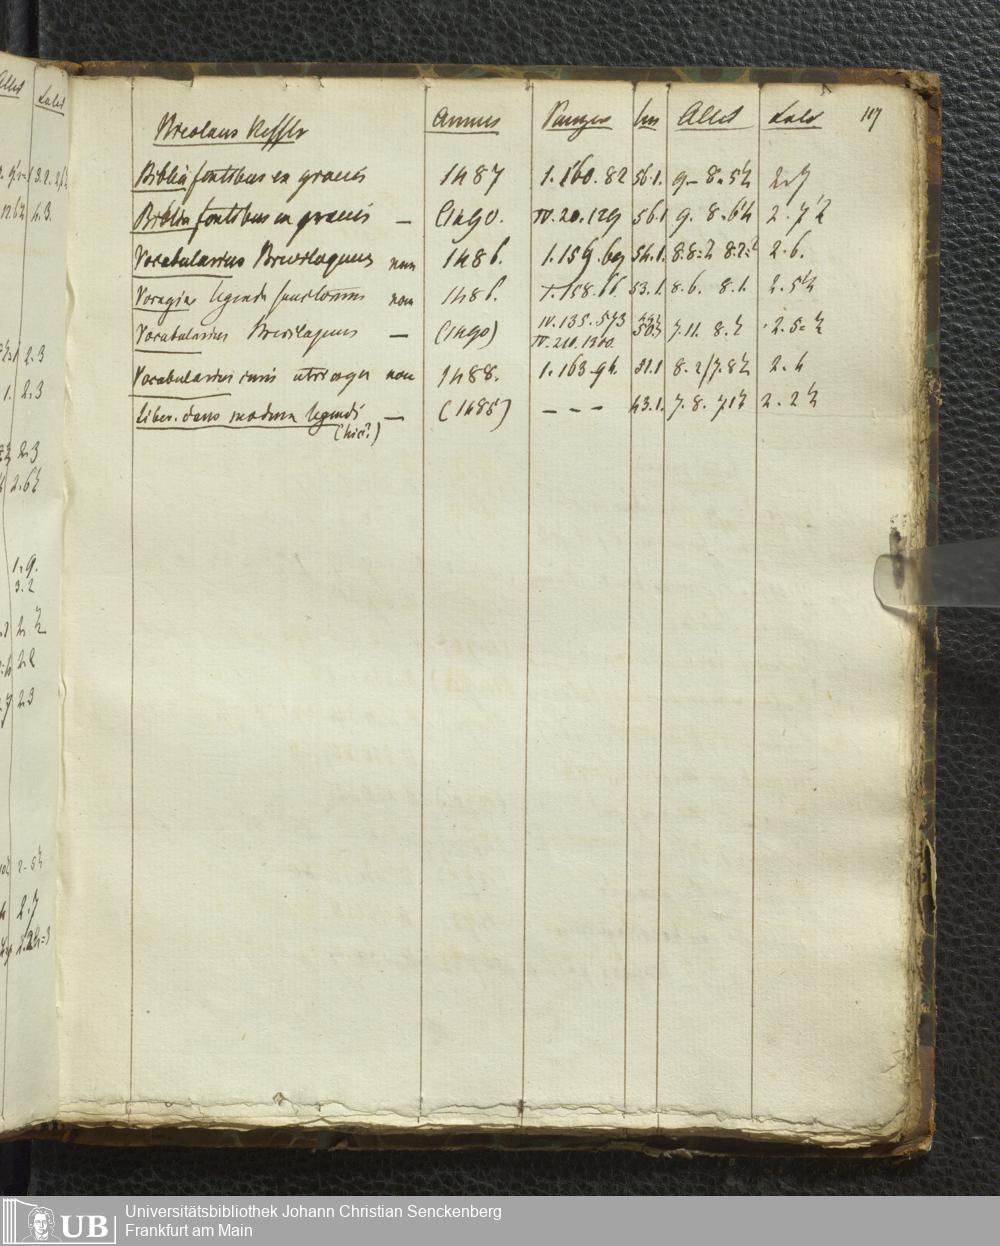 Nicolaus Kessler Annus Panzer lin Altit Latit 117
Biblia fontibus ex graecis 1487 1.160.82 56.1. 9 - 8.5½ 2.7
Biblia fontibus ex graecis — (1490. IV.20.129 56.1 9. 8.6½ 2.7½
Vocabularius Breviloquus non 1486. 1.159.69 54.1. 2.6.
Voragine legenda sanctorum non 1486. 1.158.66 53.1. 8.6. 8.1. 2.5½
Vocabularius Breviloquus — (1490) IV.135.573 7.11. 8.½ 2.5=½
IV.210.1300.
Vocabularius iuris utriusque non 1488. 1.163.94. 51.1 8.2/7.8½ 2.4
Liber dans modum legendi — (1485) – – – 43.1. 7.8. 7.1½ 2.2½
(hic?)
Altit Latit
2.3
2.3
2.3
2.6½
1.9.
3.2
2.½
2.2
2.3
2.5½
2.7
Universitätsbibliothek Johann Christian Senckenberg
Frankfurt am Main
UB